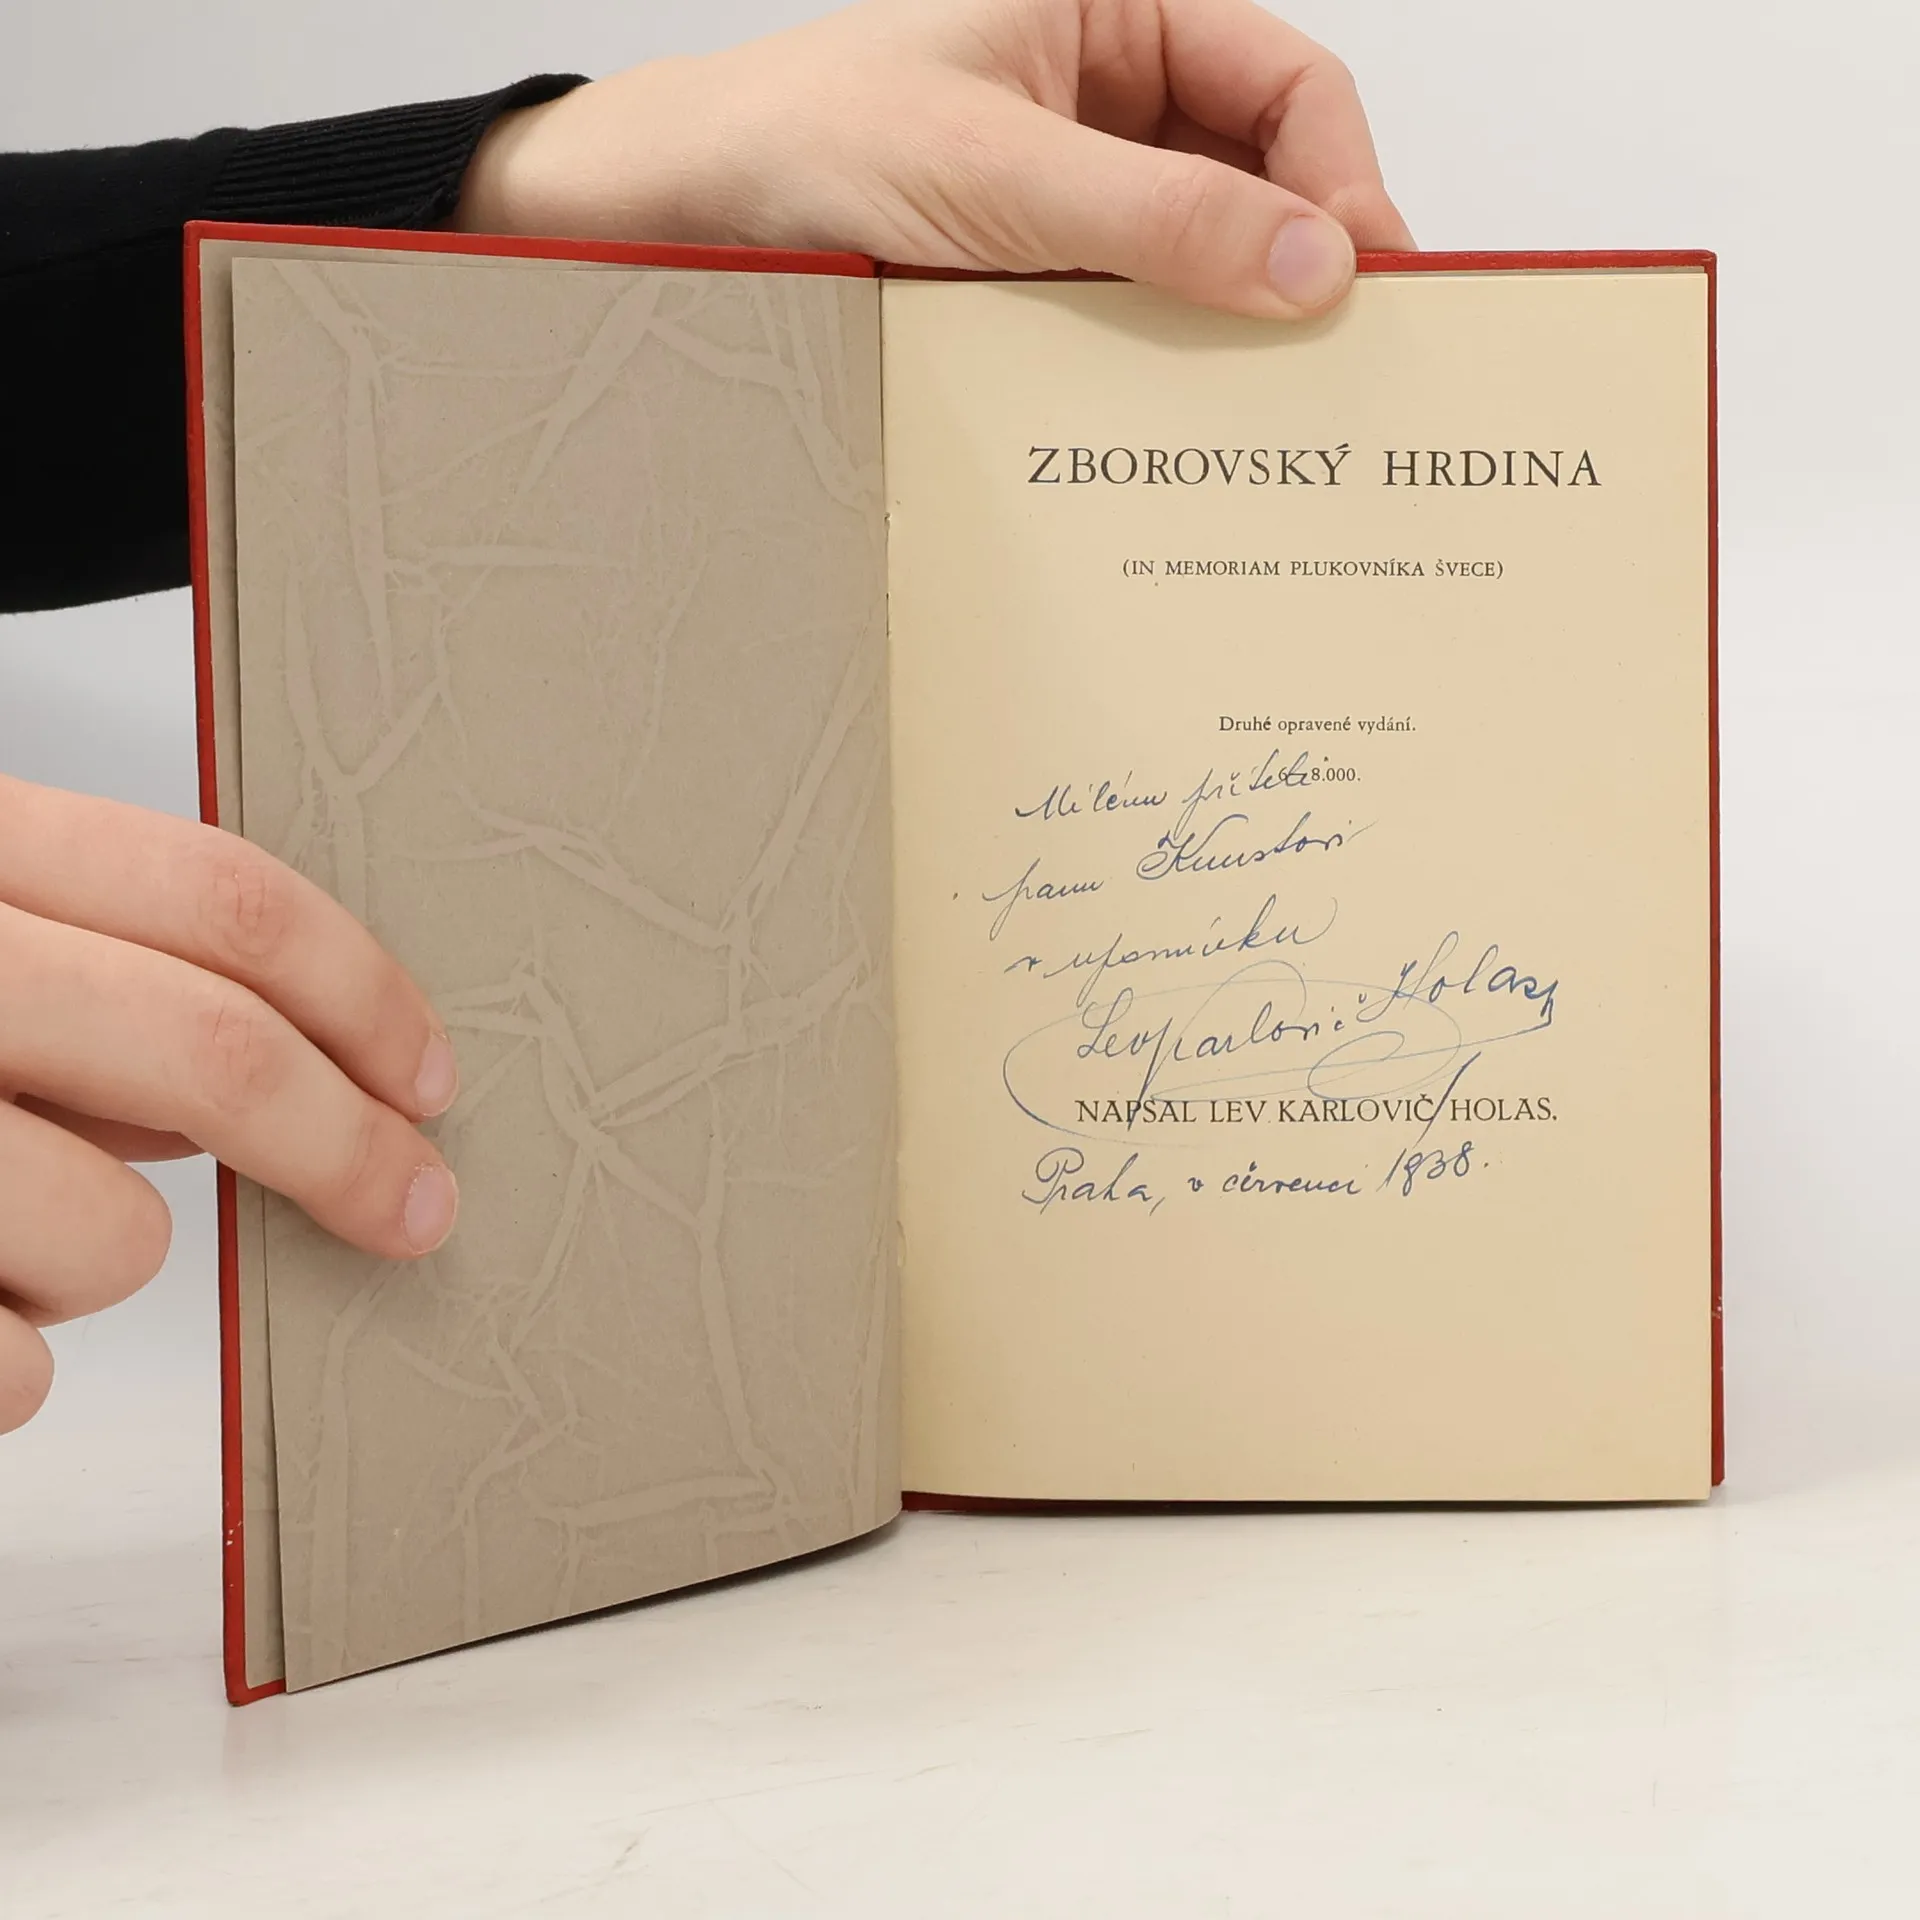 ZBOROVSKÝ HRDINA
(IN MEMORIAM PLUKOVNÍKA ŠVECE)
Druhé opravené vydání.
6.–8.000.
Milému příteli
panu Kunstovi
v upomínku
Lev Karlovič Holas
NAPSAL LEV KARLOVIČ HOLAS.
Praha, v červenci 1938.